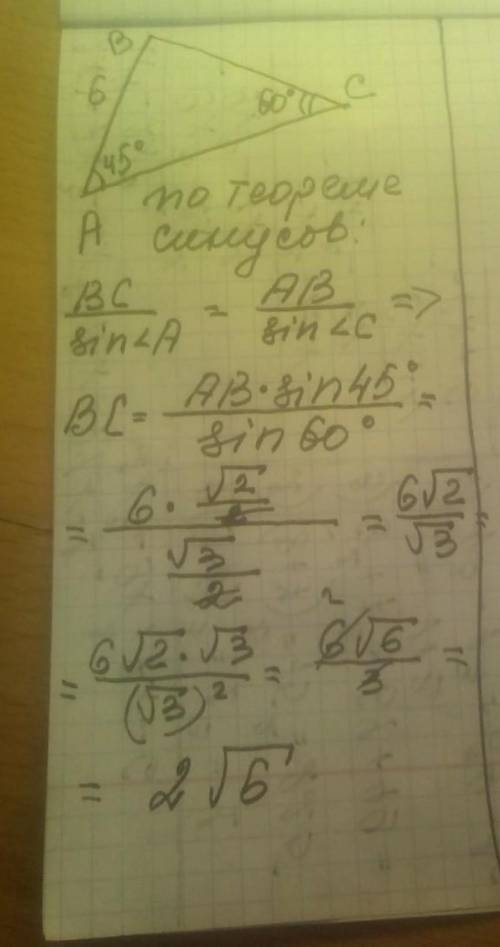 B
6
60° C
45°
A
по теореме
синусов:
BC/sin∠A = AB/sin∠C =>
BC = AB·sin45°/sin60° =
= 6·(√2/2)/(√3/2) = 6√2/√3 =
= 6√2·√3/(√3)² = 2 6√6/3 =
= 2√6